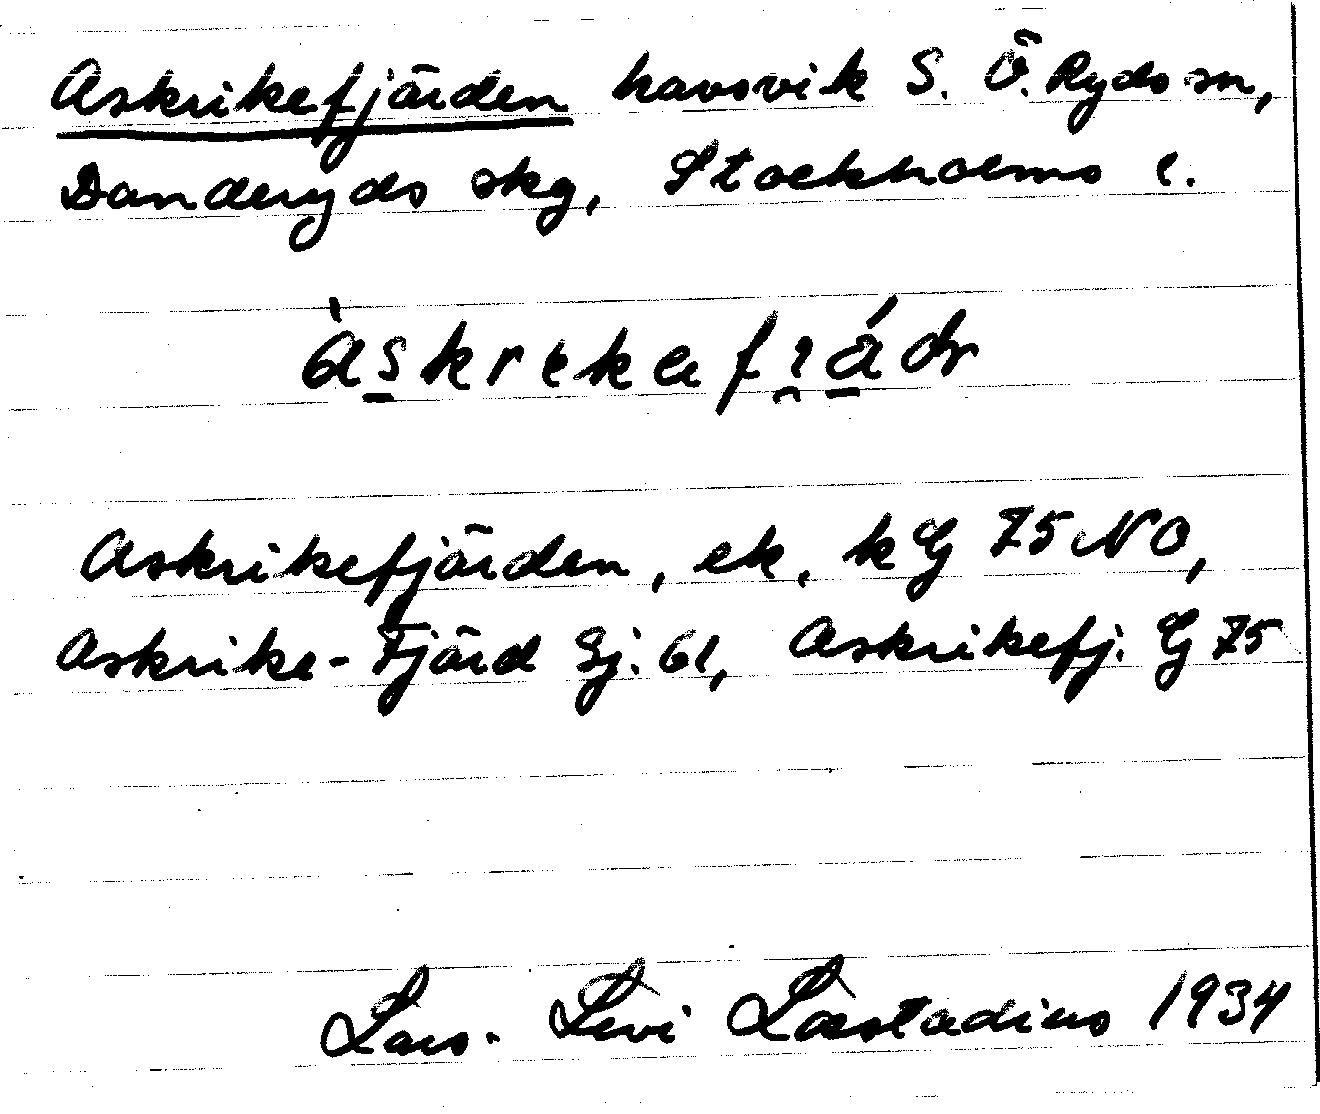 Askrikefjärden havsvik S. Ö. Ryds sn,
Danderyds skg, Stockholms l.
Askrikefjärden, ek. k G 75 NO,
Askrike-Fjärd Gj. 61, Askrikefj. G 75
Lars-Levi Læstadius 1934